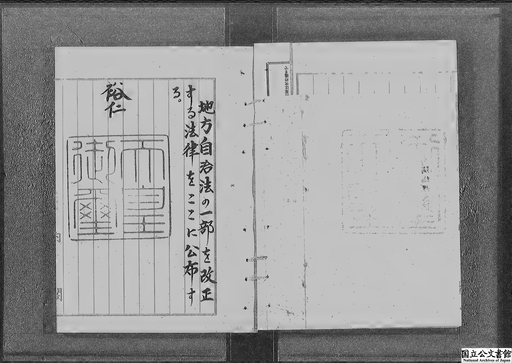 地方自治法の一部を改正
する法律をここに公布す
る。
裕仁
天皇
御璽
国立公文書館
National Archives of Japan